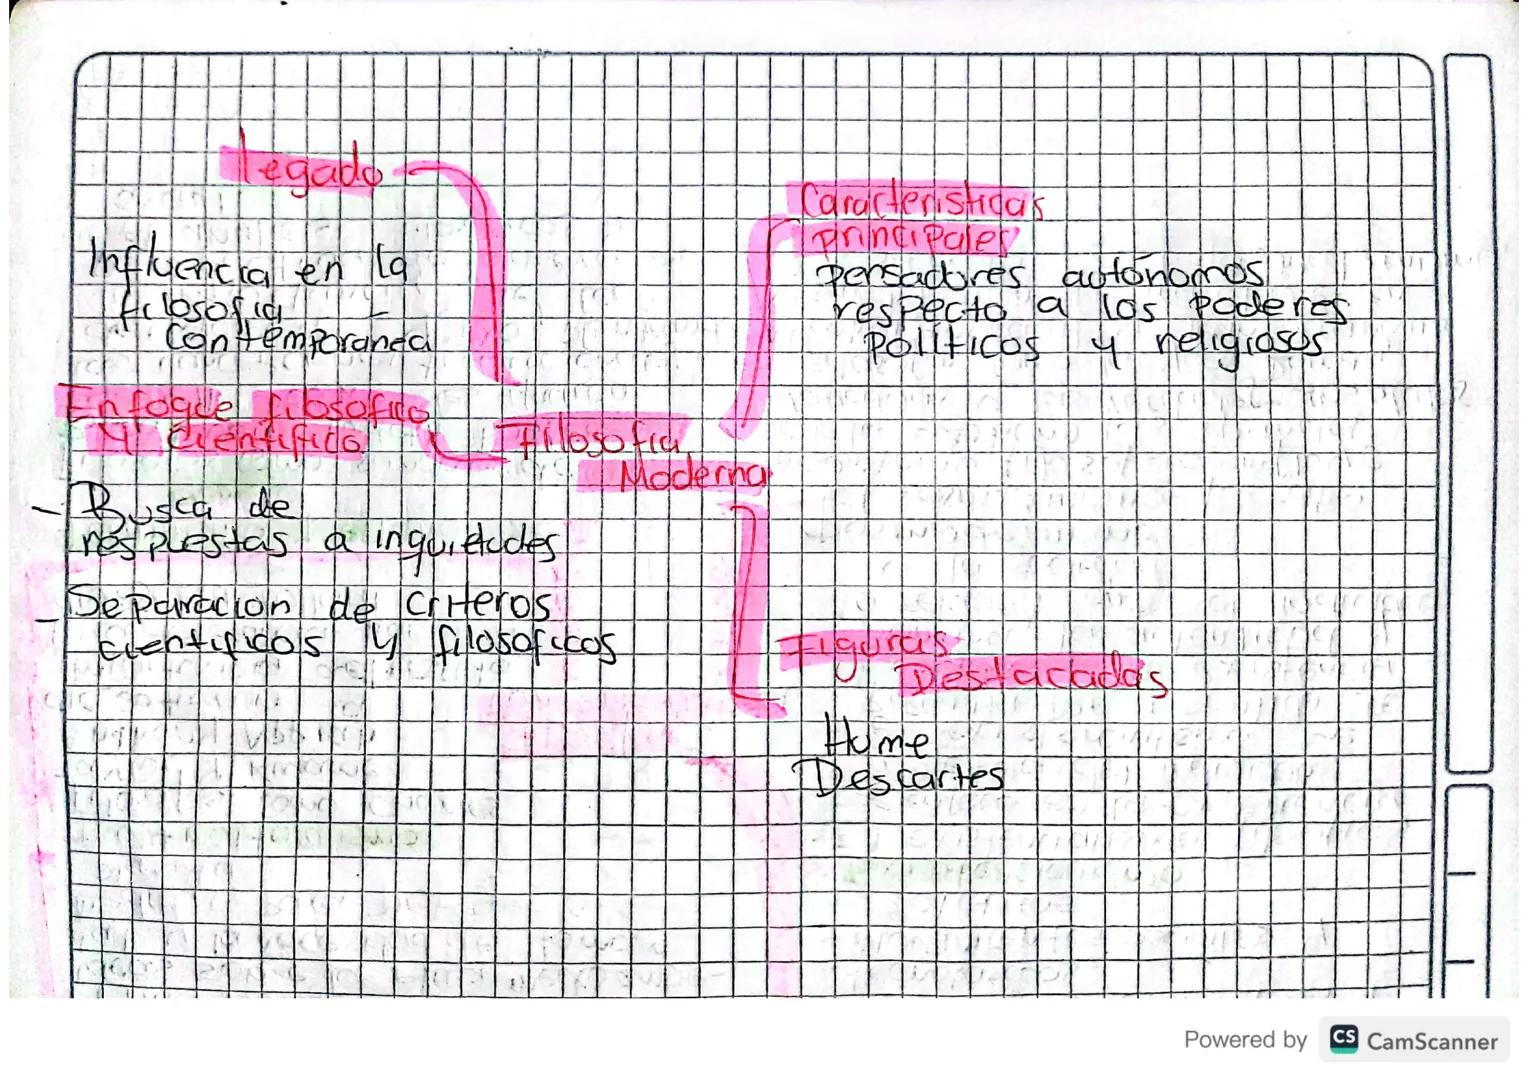 Legado
Influencia en la
filosofia
Contemporanea
Enfoque filosofico
y Cientifico
- Busca de
respuestas a inquietudes
- Separacion de criteros
cientificos y filosoficos
Filosofia
Moderna
Caracteristicas
principales
pensadores autónomos
respecto a los poderes
políticos y religiosos
Figuras
Destacadas
Hume
Descartes
Powered by CS CamScanner